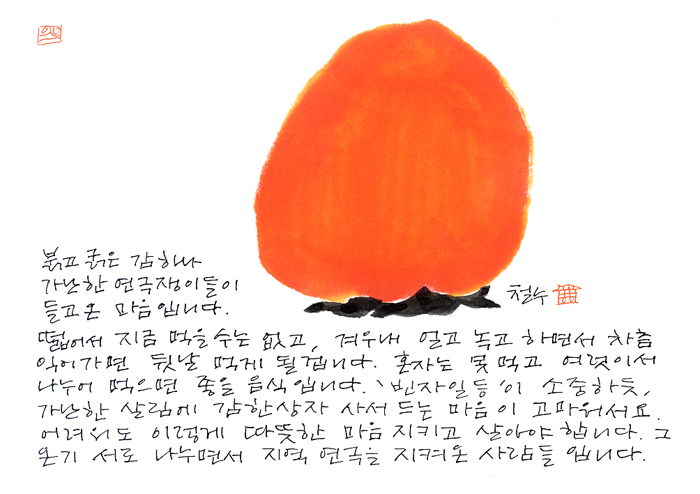 붉고 굵은 감 하나
가난한 연극쟁이들이
들고 온 마음입니다.
철수
떫어서 지금 먹을 수는 없고, 겨우내 얼고 녹고 하면서 차츰
익어가면 뒷날 먹게 될겁니다. 혼자는 못 먹고 여럿이서
나누어 먹으면 좋을 음식입니다. '빈자일등'이 소중하듯,
가난한 살림에 감 한 상자 사서 드는 마음이 고마워서요.
어려워도 이렇게 따뜻한 마음 지키고 살아야 합니다. 그
온기 서로 나누면서 지역 연극을 지켜온 사람들 입니다.